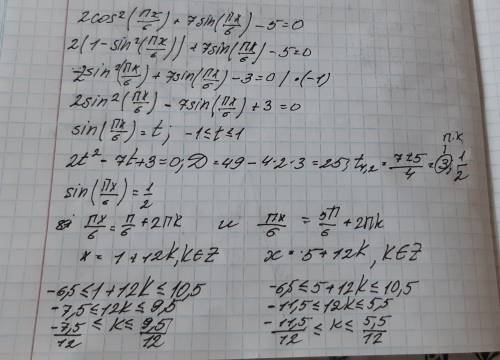 2cos²(πx/6) + 7sin(πx/6) - 5 = 0
2(1 - sin²(πx/6)) + 7sin(πx/6) - 5 = 0
-2sin²(πx/6) + 7sin(πx/6) - 3 = 0 / · (-1)
2sin²(πx/6) - 7sin(πx/6) + 3 = 0
sin(πx/6) = t; -1 ≤ t ≤ 1
п.к
2t² - 7t + 3 = 0; D = 49 - 4·2·3 = 25; t₁,₂ = (7±5)/4 = 3; 1/2
sin(πx/6) = 1/2
πx/6 = π/6 + 2πk и πx/6 = 5π/6 + 2πk
x = 1 + 12k, k∈Z x = 5 + 12k, k∈Z
-6,5 ≤ 1 + 12k ≤ 10,5 -6,5 ≤ 5 + 12k ≤ 10,5
-7,5 ≤ 12k ≤ 9,5 -11,5 ≤ 12k ≤ 5,5
-7,5/12 ≤ k ≤ 9,5/12 -11,5/12 ≤ k ≤ 5,5/12